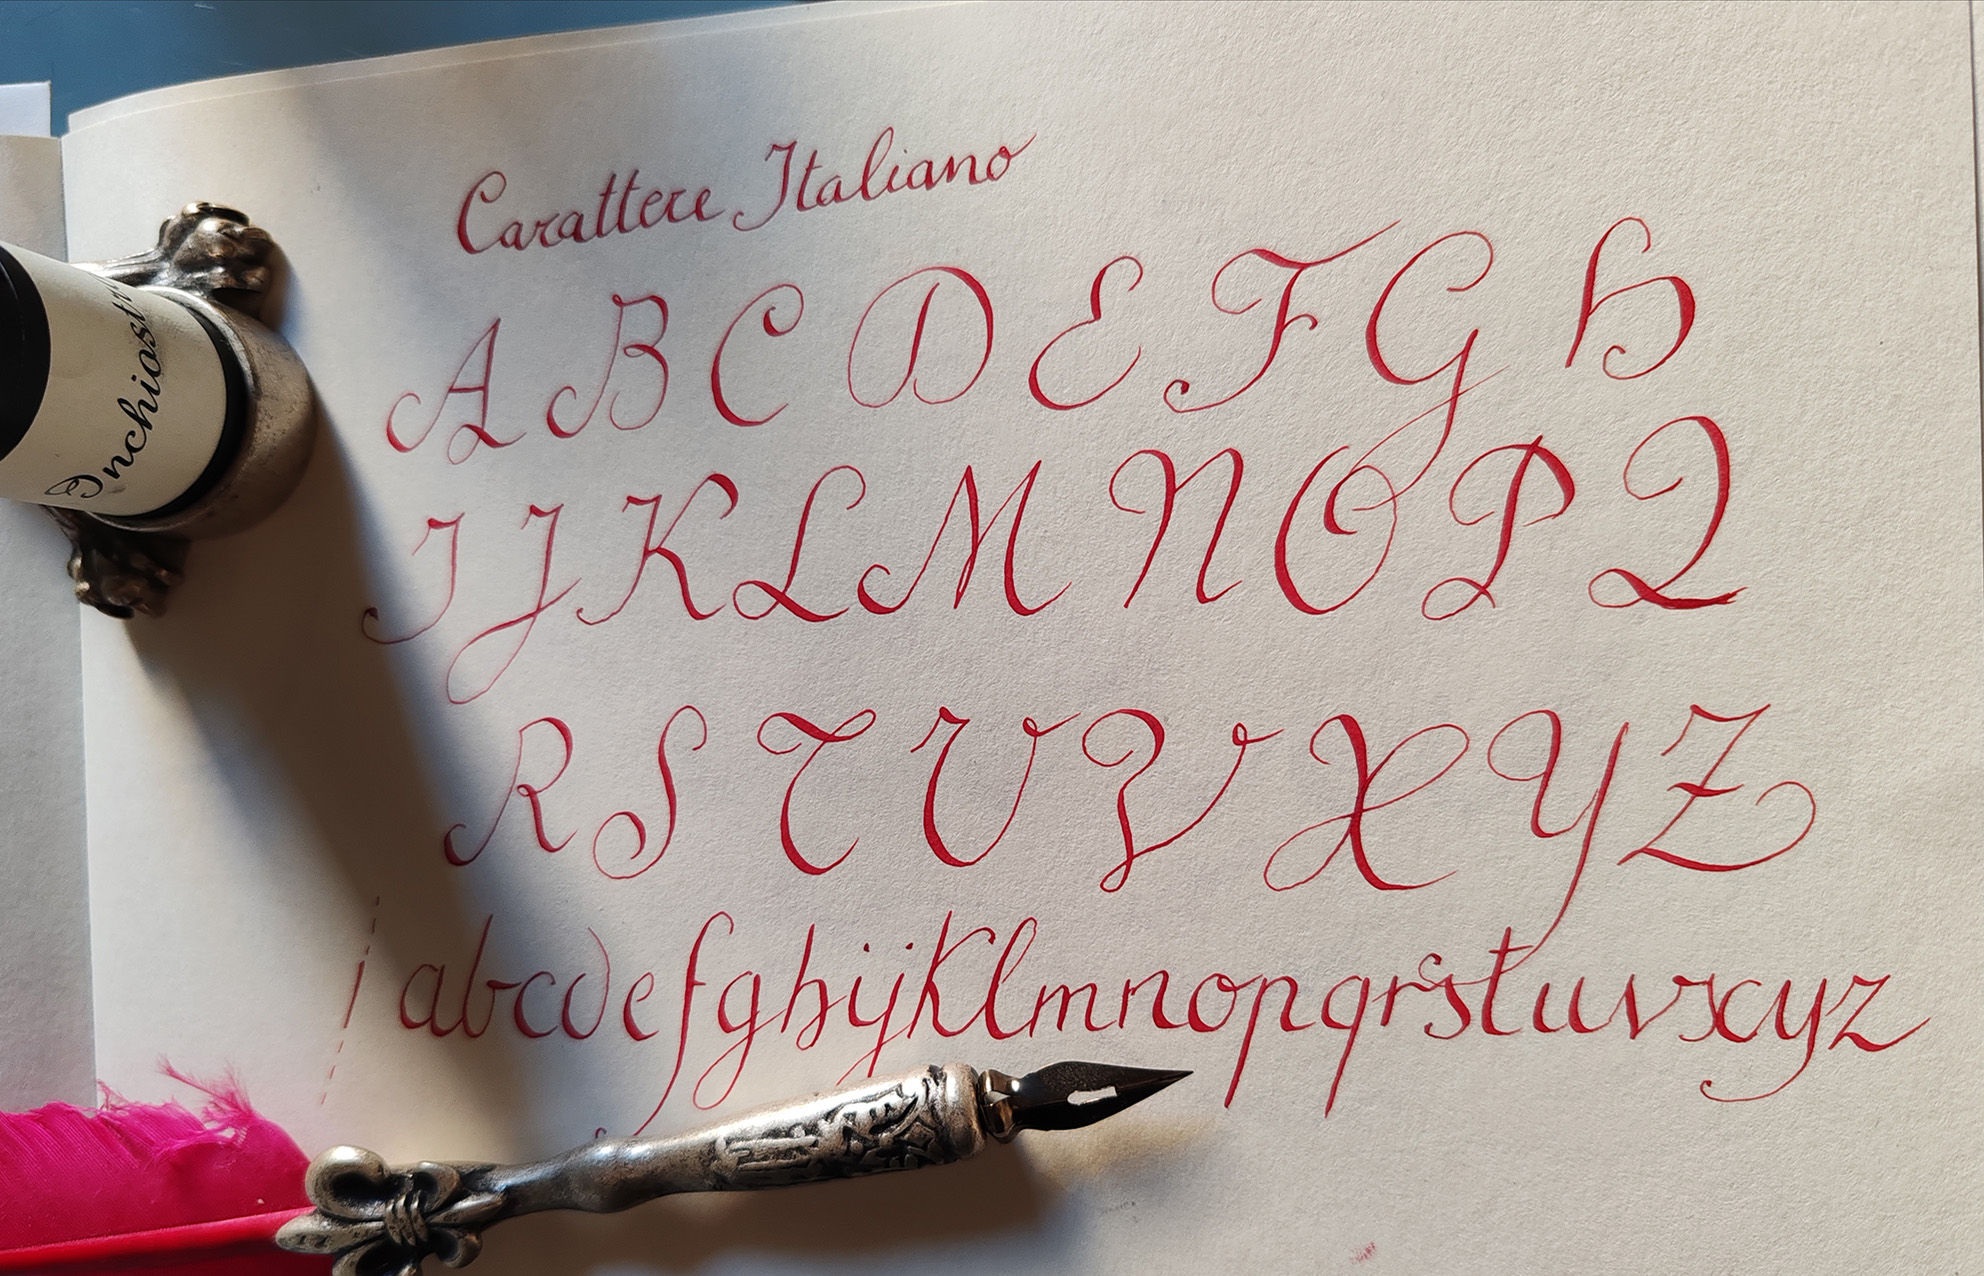 Carattere Italiano
A B C D E F G H
I J K L M N O P Q
R S T U V X Y Z
a b c d e f g h i j k l m n o p q r s t u v x y z
Inchiostr